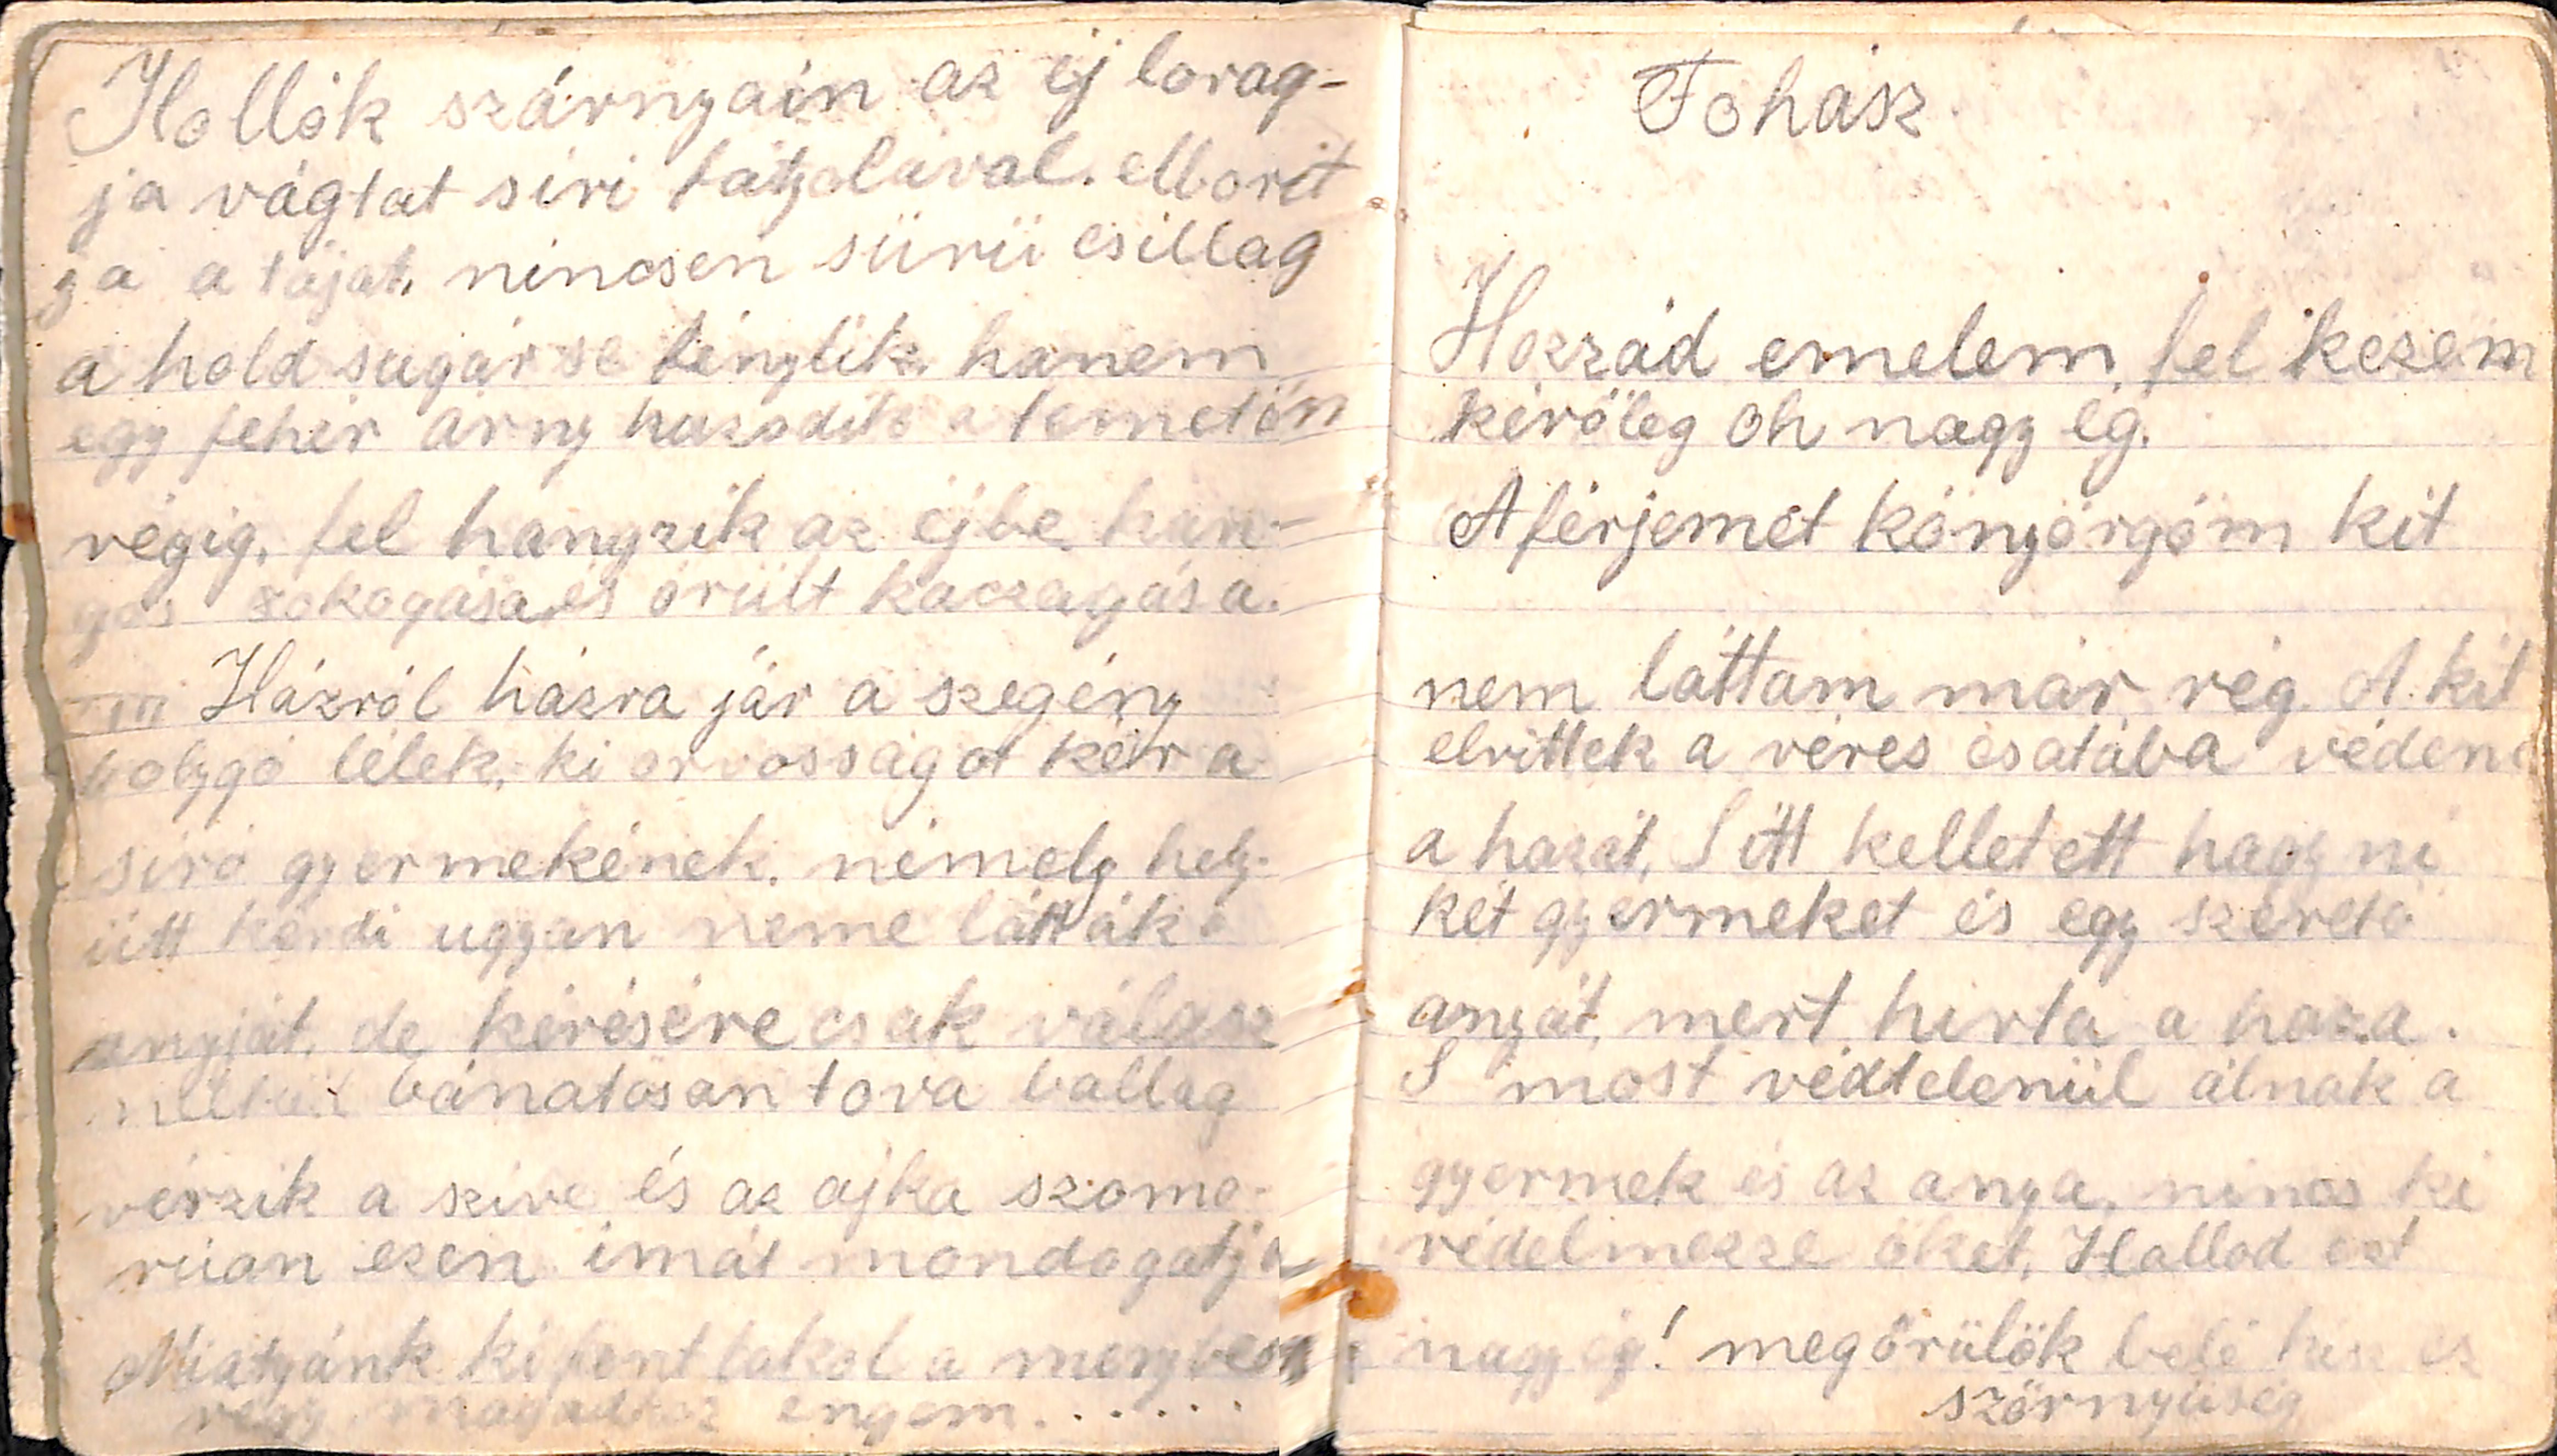 Hollók szárnyain az éj lovag-
ja vágtat siri fátyolával. Mborit
ja a tájat, nincsen sürü csillag
a hold sugár se fénylik, hanem
egy fehér árny huzodik a temetőn
végig, fel hangzik az éjbe han-
gos zokogása és örült kaczagása.
Házról házra jár a szegény
bolygó lélek, ki orvosságot kér a
siró gyermekének. némely hely-
ütt kérdi ugyan neme látták e
anyját, de kérésére csak válasz
nélkül bánatosan tova ballag
vérzik a szive és az ajka szomo-
rúan ezen imát mondogatja
Miatyánk ki fent lakol a menyben
végy magadhoz engem. . . . . . .
Fohász
Hozzád emelem fel kezem
kérőleg óh nagy ég.
A férjemét könyörgöm kit
nem láttam már rég A kit
elvittek a véres csatába védeni
a hazát, S itt kelletett hagyni
két gyermeket és egy szerető
anyát, mert hivta a haza.
S most védtelenül álnak a
gyermek és az anya, nincs ki
védelmezze őket, Hallod ezt
nagy ég! megőrülök belé hisz ez
szörnyüség